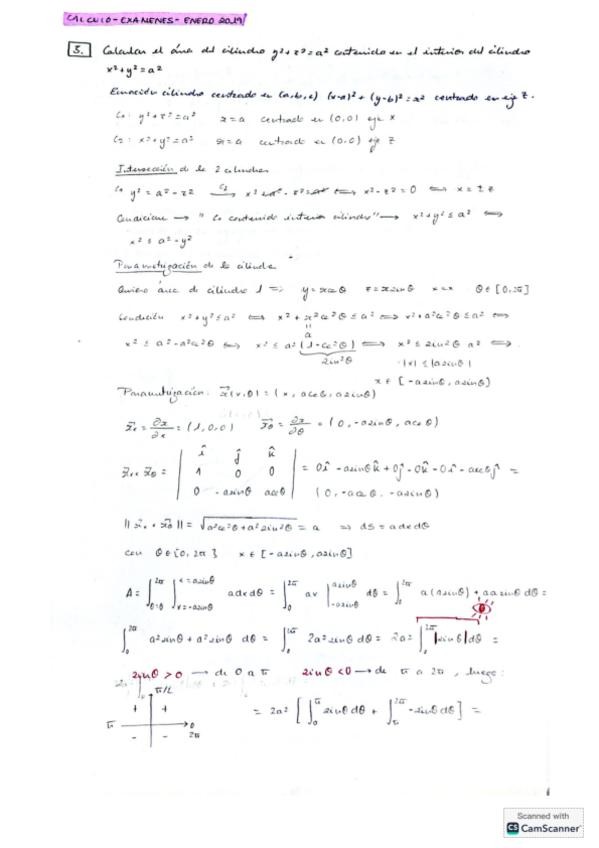 CALCULO - EXAMENES - ENERO 2019
3. Calcular el área del cilindro y²+z²=a² contenido en el interior del cilindro
x²+y²=a²
Ecuación cilindro centrado en (a,b,c) (x-a)²+(y-b)²=r² centrado en eje z.
C₁: y²+z²=a² r=a centrado en (0,0) eje x
C₂: x²+y²=a² r=a centrado en (0,0) eje z
Intersección de los 2 cilindros
C₁ y²=a²-z² x²-z²=0 ⟺ x=±z
Condición → "C₁ contenido interior cilindro" → x²+y²≤a² ⟺
x²≤a²-y²
Parametrización de la cilindro
Quiero área de cilindro 1 ⟹ y=rcosθ z=rsinθ x=x θ∈[0,2π]
Condición x²+y²≤a² ⟺ x²+r²cos²θ≤a² ⟺ x²+a²cos²θ≤a² ⟺
a
x²≤a²-a²cos²θ ⟺ x²≤a²(1-cos²θ) ⟺ x²≤sin²θ a² ⟺
sin²θ
|x|≤|asinθ|
x∈[-asinθ, asinθ]
Parametrización: x(x,θ)=(x, acosθ, asinθ)
xₓ=∂x/∂x=(1,0,0) xθ=∂x/∂θ=(0,-asinθ, acosθ)
xₓ×xθ = | î ĵ k̂ | 1 0 0 | 0 -asinθ acosθ | = 0î-asinθk̂+0ĵ-0k̂-0î-acosθĵ =
(0,-acosθ,-asinθ)
||xₓ×xθ||=√a²cos²θ+a²sin²θ=a ⟹ dS=adxdθ
con θ∈[0,2π] x∈[-asinθ, asinθ]
A=∫θ=0^2π ∫x=-asinθ^x=asinθ adxdθ = ∫₀^2π ax |-asinθ^asinθ dθ = ∫₀^2π a(asinθ)+aasinθdθ=
∫₀^2π a²sinθ+a²sinθ dθ = ∫₀^2π 2a²sinθdθ = 2a²∫₀^2π |sinθ|dθ =
sinθ>0 → de 0 a π sinθ<0 → de π a 2π, luego:
π/2
+ +
π 0
2π
- -
= 2a² [∫₀^π sinθdθ + ∫π^2π -sinθdθ] =
Scanned with
CS CamScanner